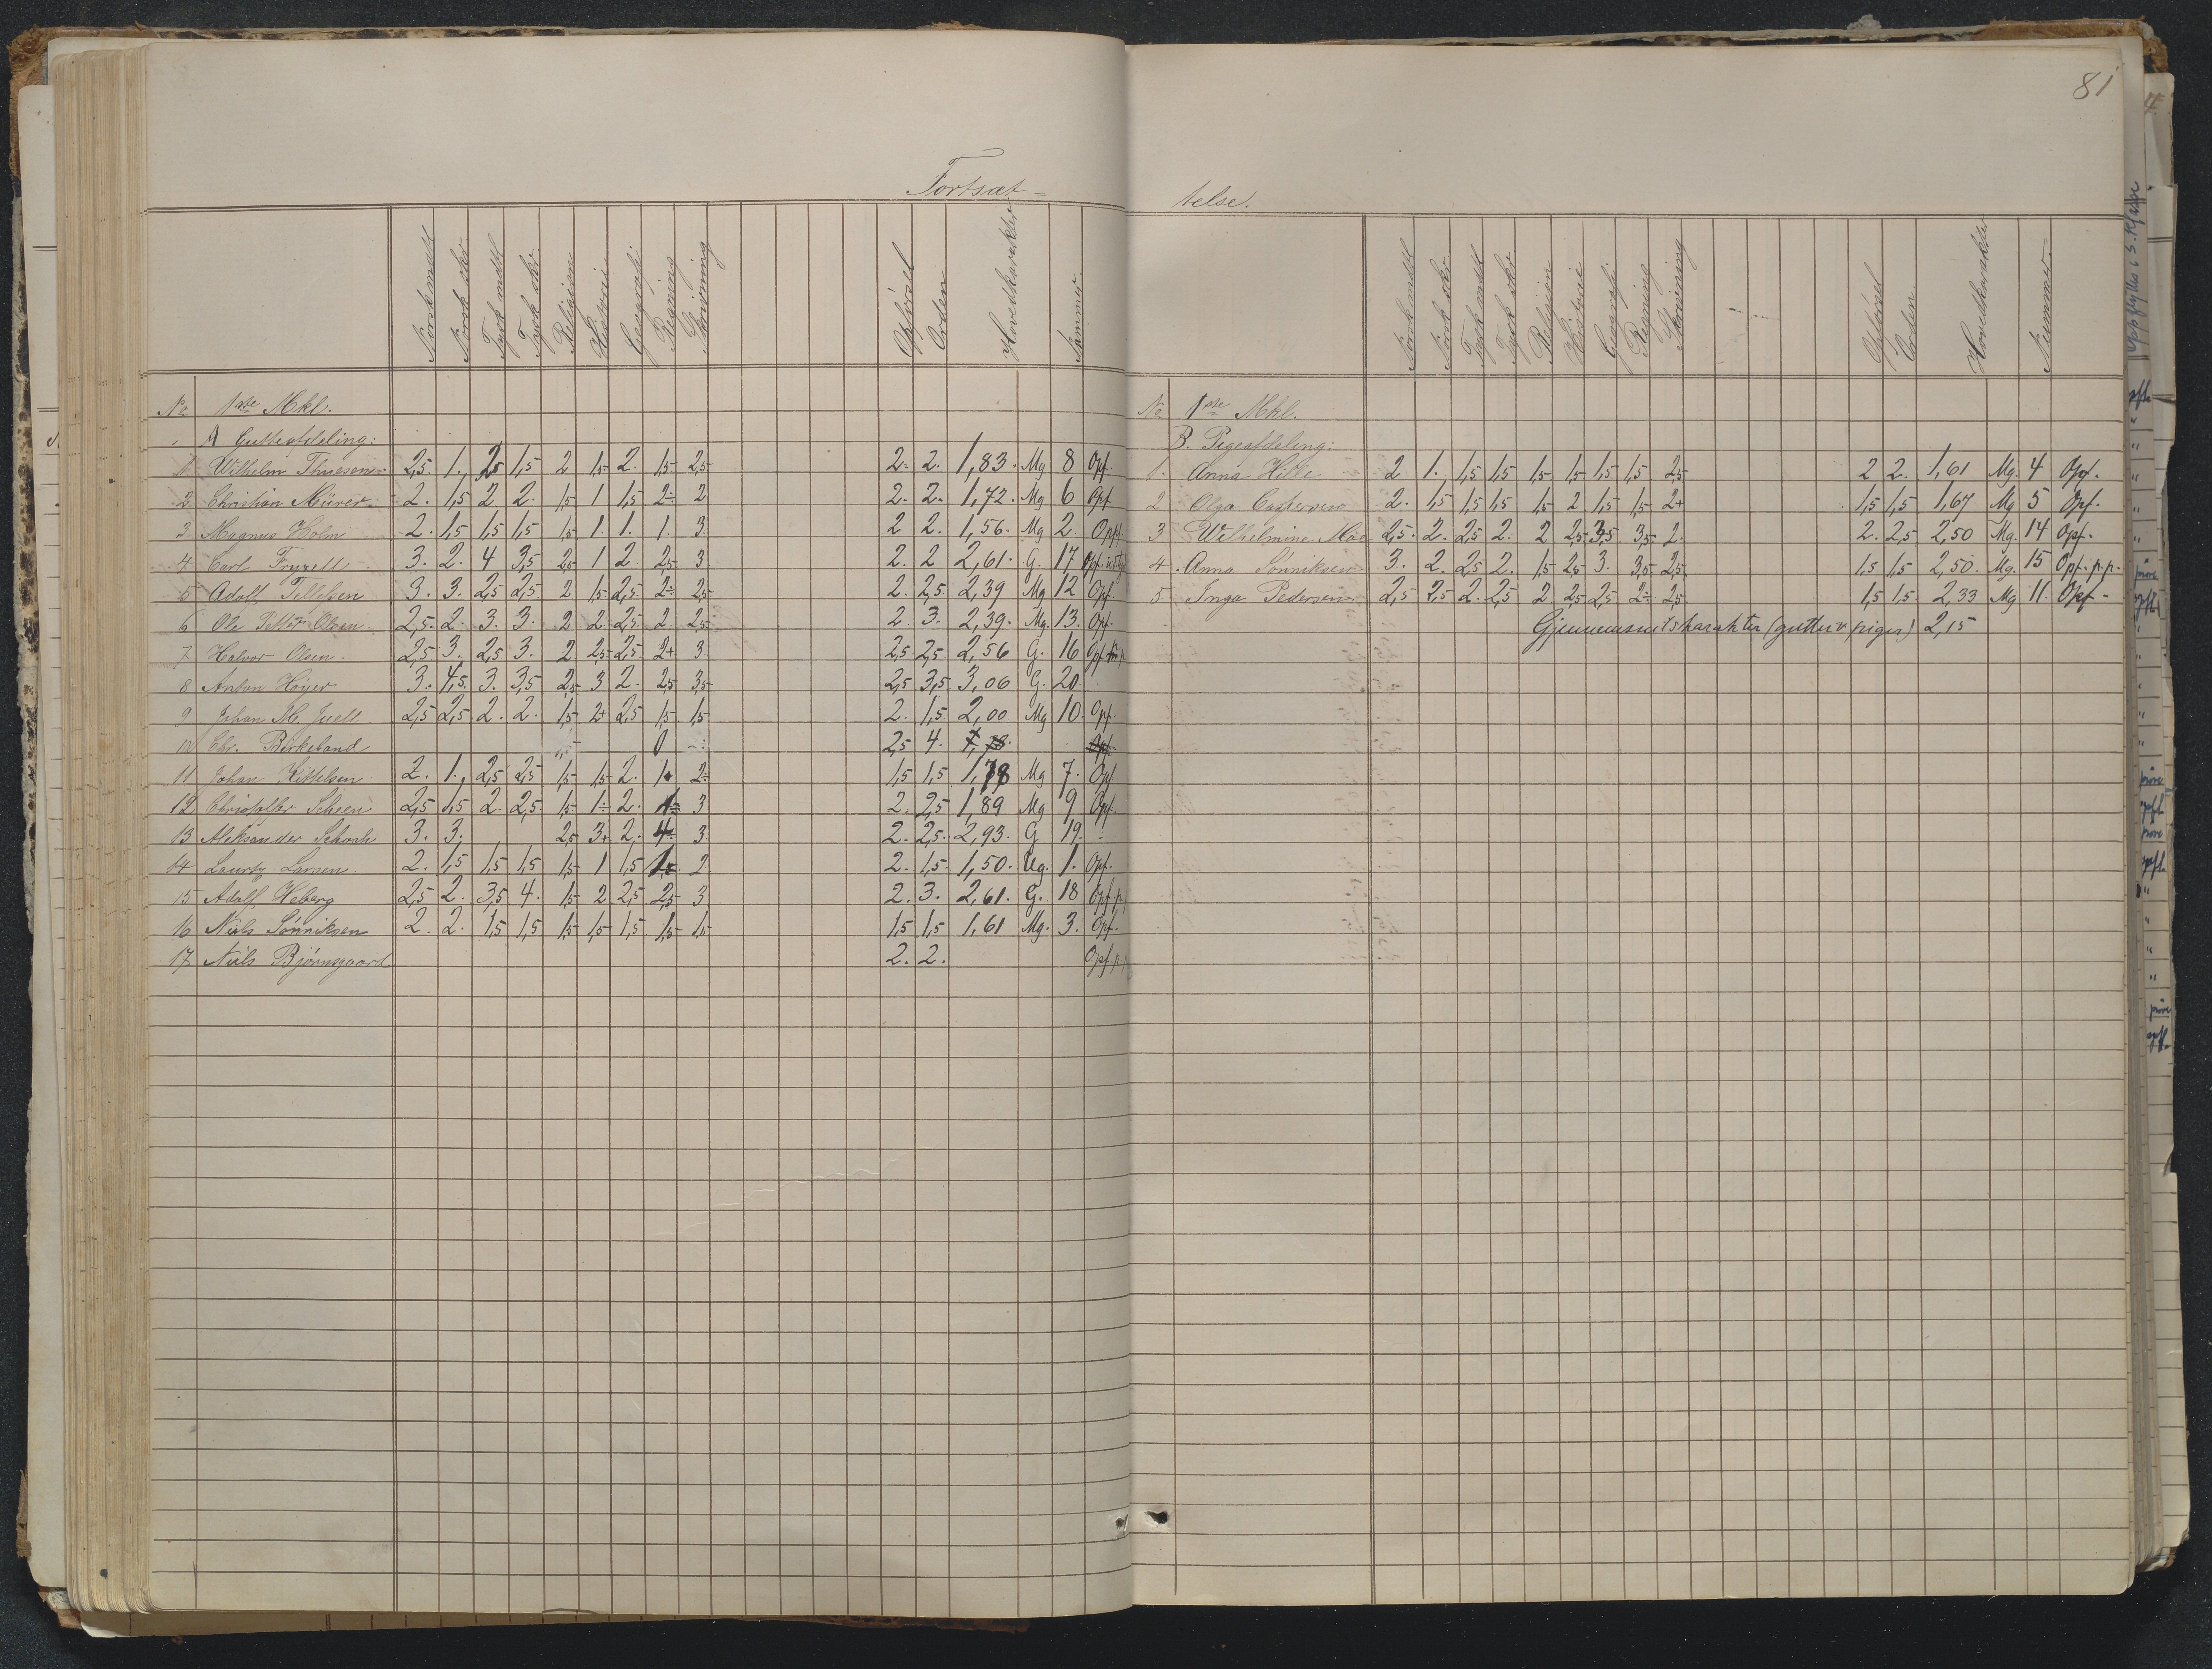 81
Fortsæt=
telse.
Norsk mdtl Norsk skr. Tysk mdtl Tysk skr. Religion Historie Geografi Regning Skrivning Opførsel Orden Hovedkarakter Nummer
No 1ste Mkl.
A Gutteafdeling:
1 Wilhelm Thuesen 2,5 1. 2,5 1,5 2 1,5 2. 1,5 2,5 2. 2. 1,83. Mg 8 Opf.
2 Christian Mürer 2. 1,5 2 2. 1,5 1 1,5 2÷ 2 2. 2. 1,72. Mg 6 Opf
3 Magnus Holm 2. 1,5 1,5 1,5 1,5 1. 1. 1. 3. 2 2. 1,56. Mg 2 Opf.
4 Carl Fryxell 3. 2. 4 3,5 2,5 1 2 2,5 3 2. 2 2,61. G. 17 Opf.
5 Adolf Tellefsen 3. 3. 2,5 2,5 2 1,5 2,5 2÷ 2,5 2. 2,5 2,39 Mg 12 Opf.
6 Ole Petter Olsen 2,5. 2. 3. 3. 2 2. 2,5 2. 2,5 2. 3. 2,39. Mg. 13. Opf.
7 Halvor Olsen 2,5 3. 2,5 3. 2 2,5 2,5 2+ 3 2,5 2,5 2,56 G. 16 Opf.
8 Anton Höyer 3. 4,5. 3. 3,5 2,5 3 2. 2,5 3,5 2,5 3,5 3,06 G. 20.
9 Johan M. Juell 2,5 2,5. 2. 2. 1,5 2+ 2,5 1,5 1,5 2. 1,5 2,00 Mg 10. Opf.
10 Chr. Birkeland 0 2,5 4. Opf.
11 Johan Kittelsen 2. 1. 2,5 2,5 1,5 1,5 2. 1. 2÷ 1,5 1,5 1,78 Mg 7. Opf
12 Christoffer Scheen 2,5 1,5 2. 2,5 1,5 1÷ 2. 1÷ 3 2. 2,5 1,89 Mg 9 Opf.
13 Aleksander Schach 3. 3. 2,5 3+ 2. 4 3. 2. 2,5. 2,93. G 19.
14 Lauritz Larsen 2. 1,5 1,5 1,5 1,5 1 1,5 1. 2 2. 1,5. 1,50. Ug. 1. Opf.
15 Adolf Heberg 2,5 2. 3,5 4. 1,5 2 2,5 2,5 3 2. 3. 2,61. G. 18 Opf. p.
16 Niels Sønniksen 2. 2. 1,5 1,5 1,5 1,5 1,5 1,5 1,5 1,5 1,5 1,61 Mg. 3. Opf.
17 Niels Bjørnsgaard 2. 2. Opf. p.
Norsk mdtl Norsk skr. Tysk mdtl Tysk skr. Religion Historie Geografi Regning Skrivning Opførsel Orden Hovedkarakter Nummer.
No 1ste Mkl.
B. Pigeafdeling:
1. Anna Hille 2 1. 1,5 1,5 1,5 1,5 1,5 1,5 2,5 2 2. 1,61 Mg. 4 Opf.
2 Olga Castersen 2. 1,5 1,5 1,5 1,5 2 1,5 1,5 2+ 1,5 1,5 1,67 Mg 5 Opf.
3 Wilhelmine Moe 2,5. 2. 2,5 2. 2 2,5 3,5 3,5 2. 2. 2,5 2,50 Mg. 14 Opf.
4. Anna Sønniksen 3. 2. 2,5 2. 1,5 2,5 3. 3,5 2,5 1,5 1,5 2,50. Mg. 15 Opf. p.p.
5 Inga Pedersen 2,5 2,5 2. 2,5 2 2,5 2,5 2÷ 2,5 1,5 1,5. 2,33 Mg 11. Opf.
Gjennemsnitskarakter (gutter & piger) 2,15